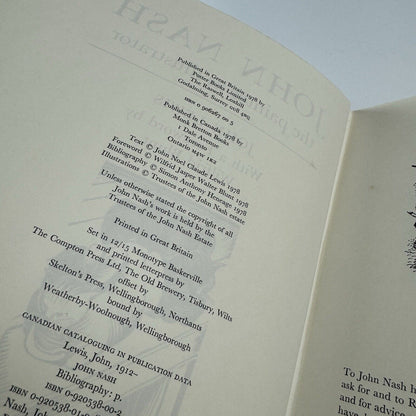 Published in Great Britain 1978 by
Potter Books Limited
The Raswell, Loxhill
Godalming, Surrey GU8 4BQ
ISBN 0 906267 00 5
Published in Canada 1978 by
Monk Bretton Books
1 Dale Avenue
Toronto
Ontario M4W 1K2
Text © John Noel Claude Lewis 1978
Foreword © Wilfrid Jasper Walter Blunt 1978
Bibliography © Simon Anthony Heneage 1978
Illustrations © Trustees of the John Nash estate
Unless otherwise stated the copyright of all
John Nash's work is held by the
Trustees of the John Nash Estate
Printed in Great Britain
Set in 12/15 Monotype Baskerville
and printed letterpress by
The Compton Press Ltd, The Old Brewery, Tisbury, Wilts
offset by
Skelton's Press, Wellingborough, Northants
bound by
Weatherby-Woolnough, Wellingborough
CANADIAN CATALOGUING IN PUBLICATION DATA
Lewis, John, 1912–
JOHN NASH
Bibliography: p.
ISBN 0-920538-00-2
ISBN 0-920538-01-
JOHN NASH
To John Nash h
ask for and to R
and for advice
have been